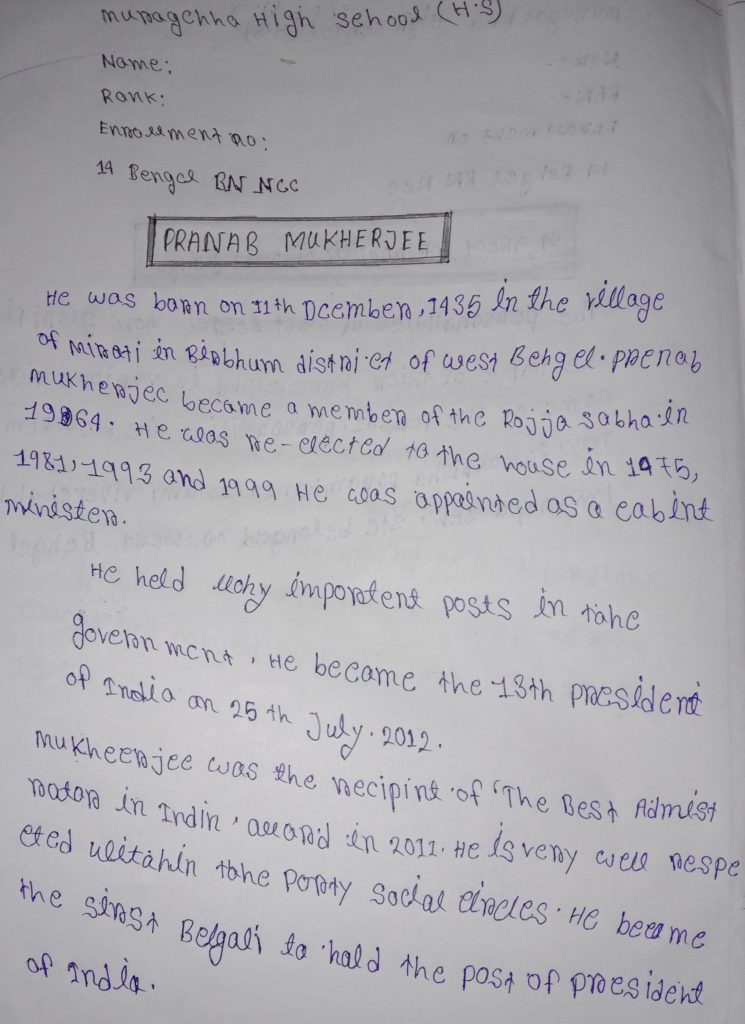 muragchha High School (H.S)
Name:
Rank:
Enrollment no:
14 Bengal BN NCC
PRANAB MUKHERJEE
He was barn on 11th Dcember, 1435 in the village
of Mirati in Birbhum district of west Bengel. prenab
mukherjec became a member of the Rajja sabha in
19964. He was re-elected to the house in 1975,
1981, 1993 and 1999 He was appointed as a cabint
minister.
He held importent posts in tahe
government, He became the 13th president
of India on 25 th July. 2012.
mukheerjee was the recipint of 'The Best Admist
rator in Indin, award in 2011. He is very well respe
cted within tahe Party social circles. He became
the first Bengali to hold the post of president
of India.